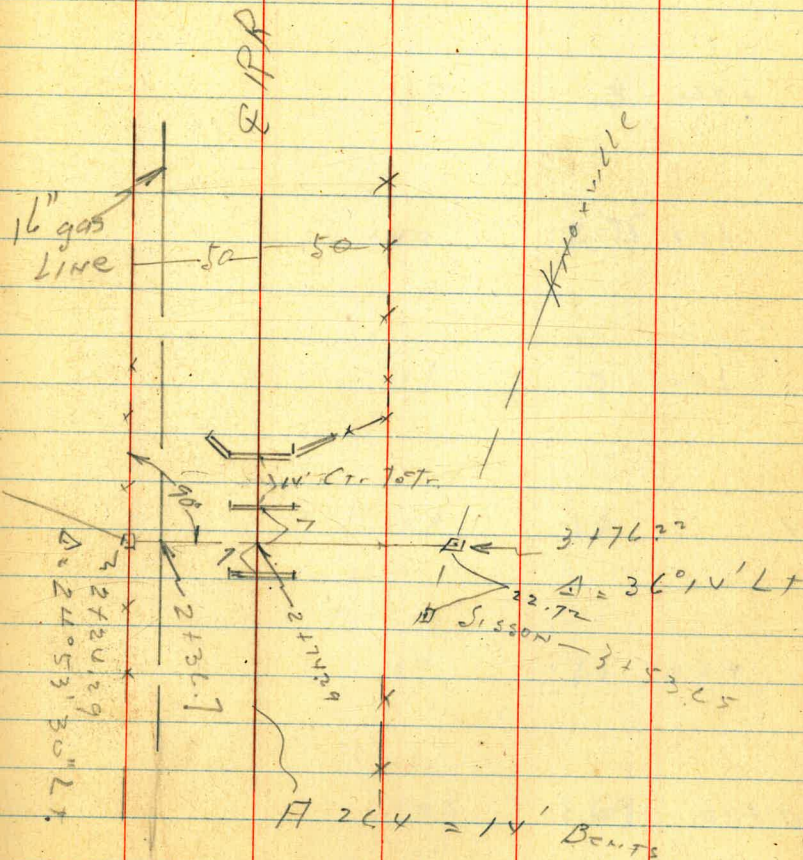 ℄ RR
16" gas
LINE
50
50
Knoxville
14' Ctr. to Ctr.
90°
7
7
3+76.22
Δ = 36°14' Lt
22.72
Sisson
3+53.65
2+36.7
2+24.29
Δ = 24°53'30" Lt.
A 264 = 14' Bents